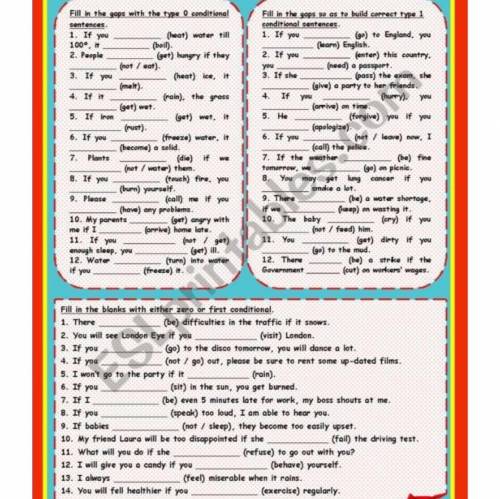 Fill in the gaps with the type 0 conditional
sentences.
1. If you ________ (heat) water till
100º, it ________ (boil).
2. People ________ (get) hungry if they
________ (not / eat).
3. If you ________ (heat) ice, it
________ (melt).
4. If it ________ (rain), the grass
________ (get) wet.
5. If iron ________ (get) wet, it
________ (rust).
6. If you ________ (freeze) water, it
________ (become) a solid.
7. Plants ________ (die) if we
________ (not / water) them.
8. If you ________ (touch) fire, you
________ (burn) yourself.
9. Please ________ (call) me if you
________ (have) any problems.
10. My parents ________ (get) angry with
me if I ________ (arrive) home late.
11. If you ________ (not / get)
enough sleep, you ________ (get) ill.
12. Water ________ (turn) into water
if you ________ (freeze) it.
Fill in the gaps so as to build correct type 1
conditional sentences.
1. If you ________ (go) to England, you
________ (learn) English.
2. If you ________ (enter) this country,
you ________ (need) a passport.
3. If she ________ (pass) the exam, she
________ (give) a party to her friends.
4. If you ________ (hurry), you
________ (arrive) on time.
5. He ________ (forgive) you if you
________ (apologize).
6. If you ________ (not / leave) now, I
________ (call) the police.
7. If the weather ________ (be) fine
tomorrow, we ________ (go) on picnic.
8. You may get lung cancer if you
________ smoke a lot.
9. There ________ (be) a water shortage,
if we ________ (keep) on wasting it.
10. The baby ________ (cry) if you
________ (not / feed) him.
11. You ________ (get) dirty if you
________ (go) to the mud.
12. There ________ (be) a strike if the
Government ________ (cut) on workers' wages.
Fill in the blanks with either zero or first conditional.
1. There ________ (be) difficulties in the traffic if it snows.
2. You will see London Eye if you ________ (visit) London.
3. If you ________ (go) to the disco tomorrow, you will dance a lot.
4. If you ________ (not / go) out, please be sure to rent some up-dated films.
5. I won't go to the party if it ________ (rain).
6. If you ________ (sit) in the sun, you get burned.
7. If I ________ (be) even 5 minutes late for work, my boss shouts at me.
8. If you ________ (speak) too loud, I am able to hear you.
9. If babies ________ (not / sleep), they become too easily upset.
10. My friend Laura will be too disappointed if she ________ (fail) the driving test.
11. What will you do if she ________ (refuse) to go out with you?
12. I will give you a candy if you ________ (behave) yourself.
13. I always ________ (feel) miserable when it rains.
14. You will fell healthier if you ________ (exercise) regularly.
ESLprintables.com